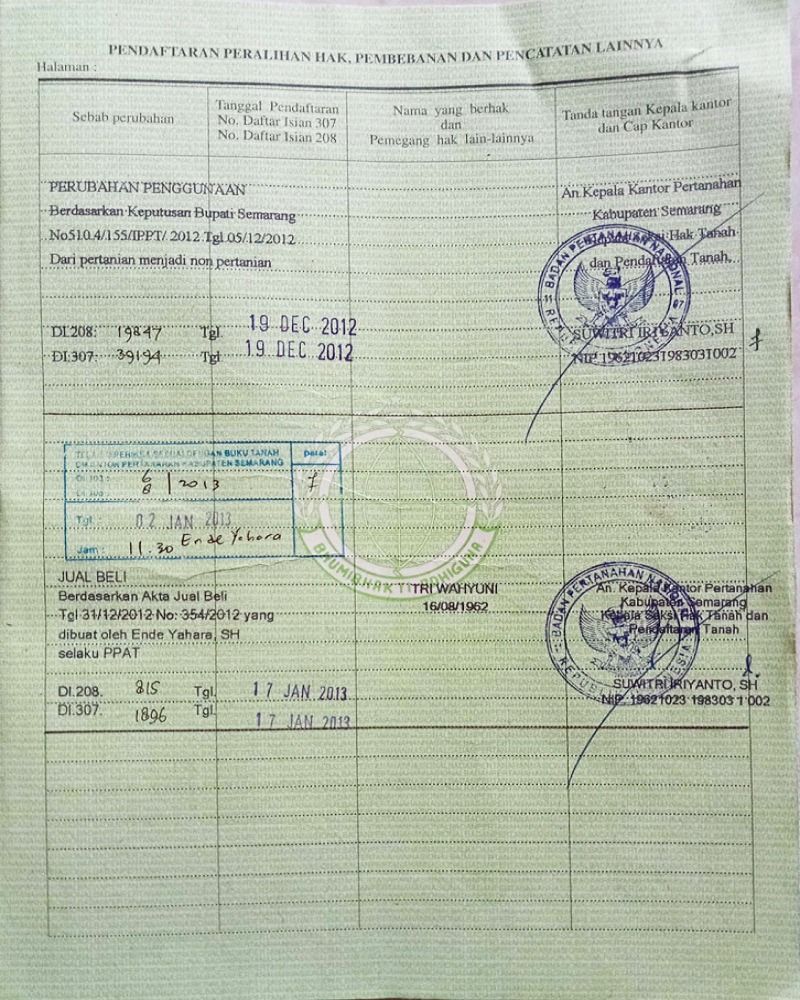 PENDAFTARAN PERALIHAN HAK, PEMBEBANAN DAN PENCATATAN LAINNYA
Halaman :
Sebab perubahan
Tanggal Pendaftaran
No. Daftar Isian 307
No. Daftar Isian 208
Nama yang berhak
dan
Pemegang hak lain-lainnya
Tanda tangan Kepala kantor
dan Cap Kantor
PERUBAHAN PENGGUNAAN
Berdasarkan Keputusan Bupati Semarang
No510.4/155/IPPT/ 2012 Tgl 05/12/2012
Dari pertanian menjadi non pertanian
An.Kepala Kantor Pertanahan
Kabupaten Semarang
Hak Tanah
dan Pendaftaran Tanah,
BADAN PERTANAHAN NASIONAL
REPUBLIK INDONESIA
DI.208: 19847 Tgl. 19 DEC 2012
DI.307: 39194 Tgl 19 DEC 2012
SUWITRI IRIYANTO,SH
NIP. 196210231983031002
BUKU TANAH
KABUPATEN SEMARANG
Paraf
6/8 / 2013
Tgl : 02 JAN 2013
Jam : 11.30 Ende Yahara
BHUMIBHAKTI ADHIGUNA
JUAL BELI
Berdasarkan Akta Jual Beli
Tgl 31/12/2012 No: 354/2012 yang
dibuat oleh Ende Yahara, SH
selaku PPAT
TRI WAHYUNI
16/08/1962
An. Kepala Kantor Pertanahan
Kabupaten Semarang
Kepala Seksi Hak Tanah dan
Pendaftaran Tanah
BADAN PERTANAHAN NASIONAL
REPUBLIK INDONESIA
DI.208. 815 Tgl. 17 JAN 2013
DI.307. 1896 Tgl. 17 JAN 2013
SUWITRI IRIYANTO, SH
NIP. 19621023 198303 1 002